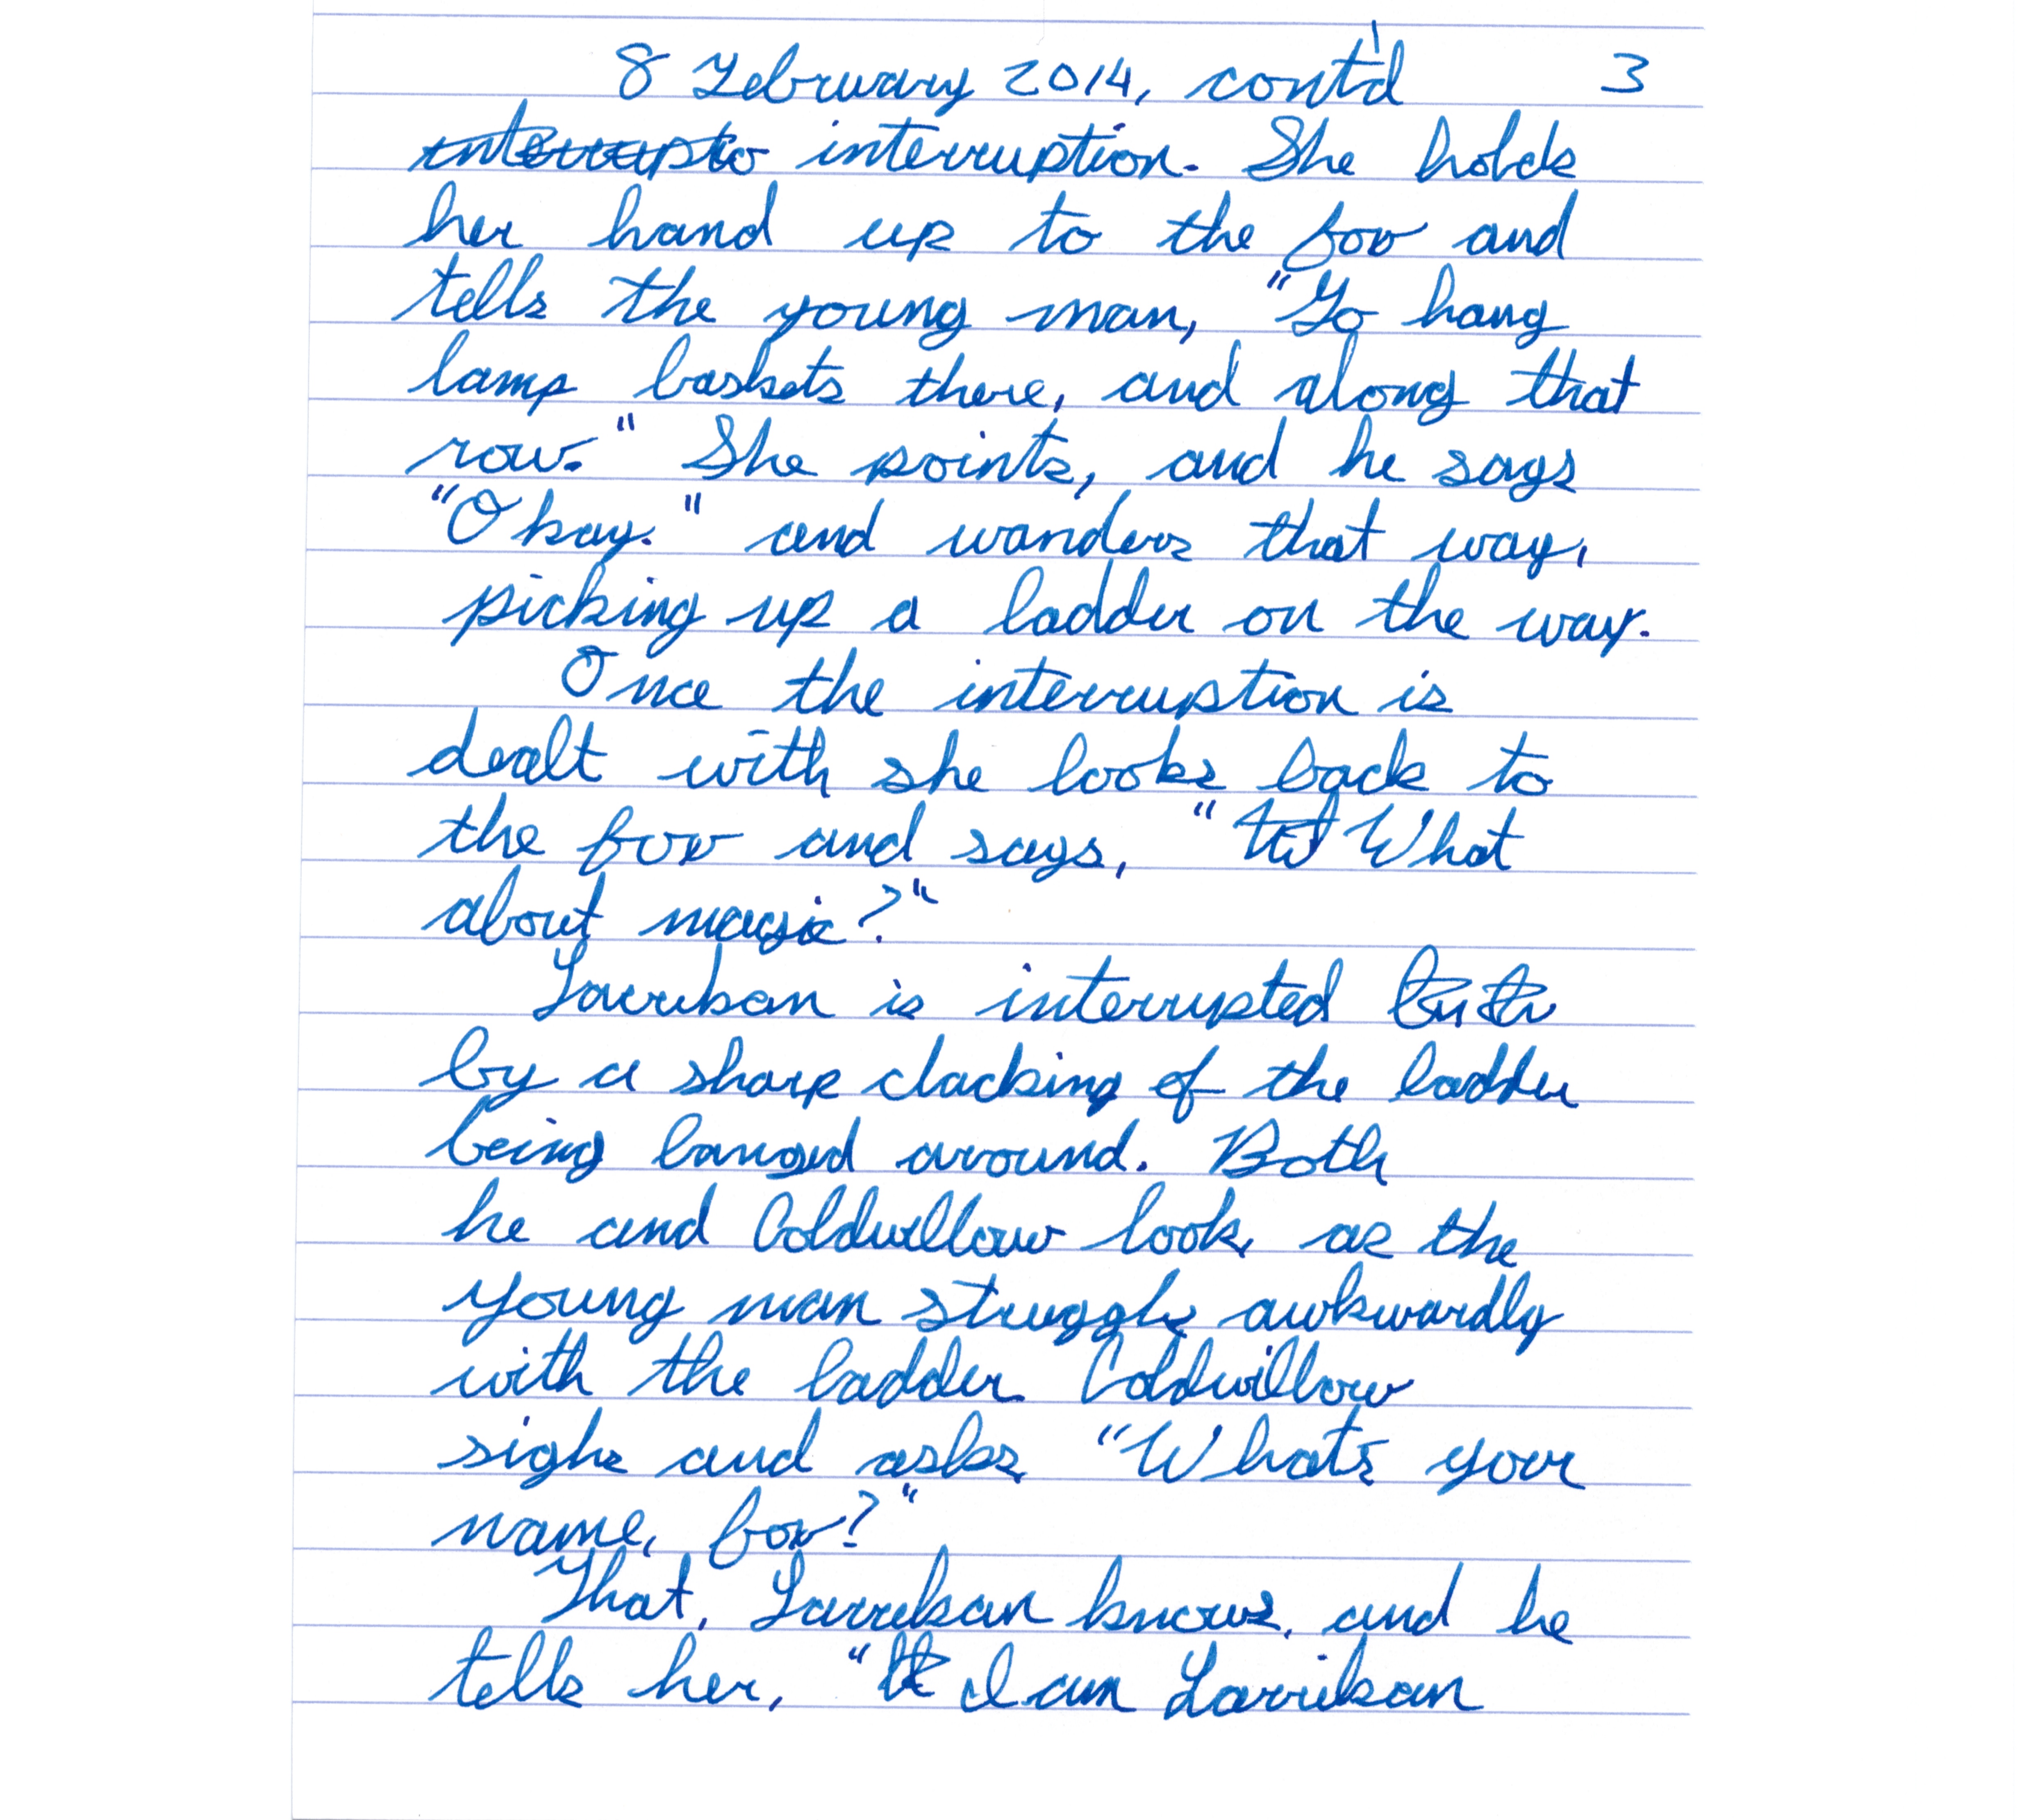 8 February 2014, cont'd 3
interruption. She holds
her hand up to the fox and
tells the young man, "Go hang
lamp baskets there, and along that
row." She points, and he says
"Okay." and wanders that way,
picking up a ladder on the way.
Once the interruption is
dealt with she looks back to
the fox and says, " What
about magic?"
Larrikan is interrupted
by a sharp clacking of the ladder
being banged around. Both
he and Coldwillow look as the
young man struggles awkwardly
with the ladder. Coldwillow
sighs and asks, "What's your
name, fox?"
That, Larrikan knows, and he
tells her, " I am Larrikan